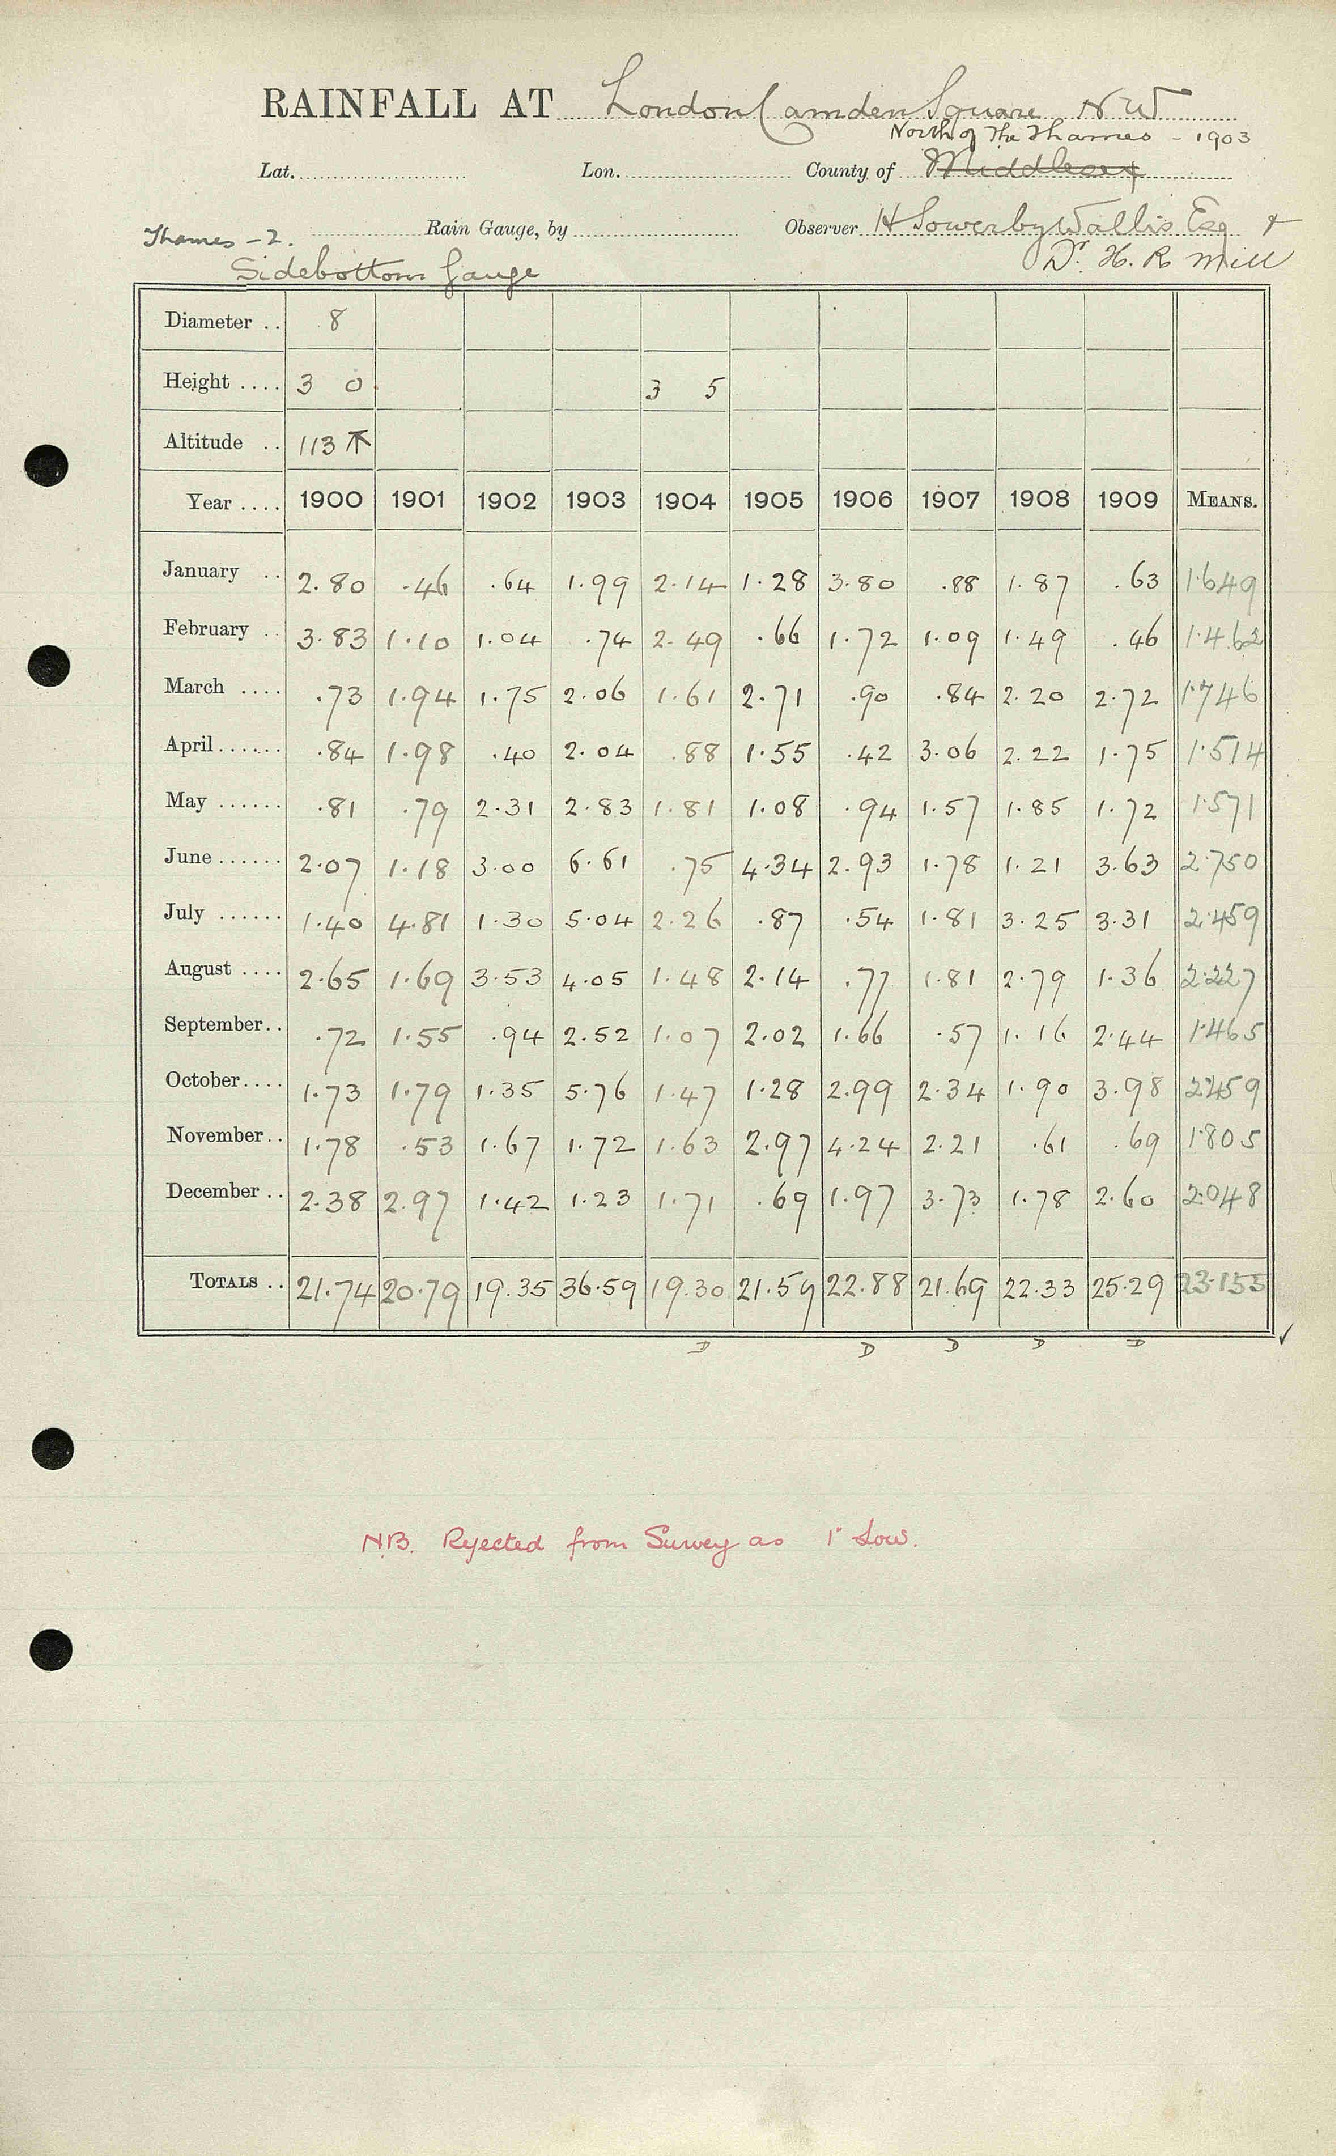 RAINFALL AT London Camden Square N W
North of The Thames - 1903
Lat. Lon. County of Middlesex
Thames - 2. Rain Gauge, by Observer H Sowerby Wallis Esq &
Sidebottom Gauge Dr. H. R. Mill
Diameter .. 8
Height .... 3 0. 3 5
Altitude .. 113 T
Year .... 1900 1901 1902 1903 1904 1905 1906 1907 1908 1909 MEANS.
January .. 2.80 .46 .64 1.99 2.14 1.28 3.80 .88 1.87 .63 1.649
February .. 3.83 1.10 1.04 .74 2.49 .66 1.72 1.09 1.49 .46 1.462
March .... .73 1.94 1.75 2.06 1.61 2.71 .90 .84 2.20 2.72 1.746
April....... .84 1.98 .40 2.04 .88 1.55 .42 3.06 2.22 1.75 1.514
May ...... .81 .79 2.31 2.83 1.81 1.08 .94 1.57 1.85 1.72 1.571
June...... 2.07 1.18 3.00 6.61 .75 4.34 2.93 1.78 1.21 3.63 2.750
July ...... 1.40 4.81 1.30 5.04 2.26 .87 .54 1.81 3.25 3.31 2.459
August .... 2.65 1.69 3.53 4.05 1.48 2.14 .77 1.81 2.79 1.36 2.227
September.. .72 1.55 .94 2.52 1.07 2.02 1.66 .57 1.16 2.44 1.465
October.... 1.73 1.79 1.35 5.76 1.47 1.28 2.99 2.34 1.90 3.98 2.459
November.. 1.78 .53 1.67 1.72 1.63 2.97 4.24 2.21 .61 .69 1.805
December .. 2.38 2.97 1.42 1.23 1.71 .69 1.97 3.73 1.78 2.60 2.048
TOTALS .. 21.74 20.79 19.35 36.59 19.30 21.59 22.88 21.69 22.33 25.29 23.155
D D D D D
N.B. Rejected from Survey as 1" Low.